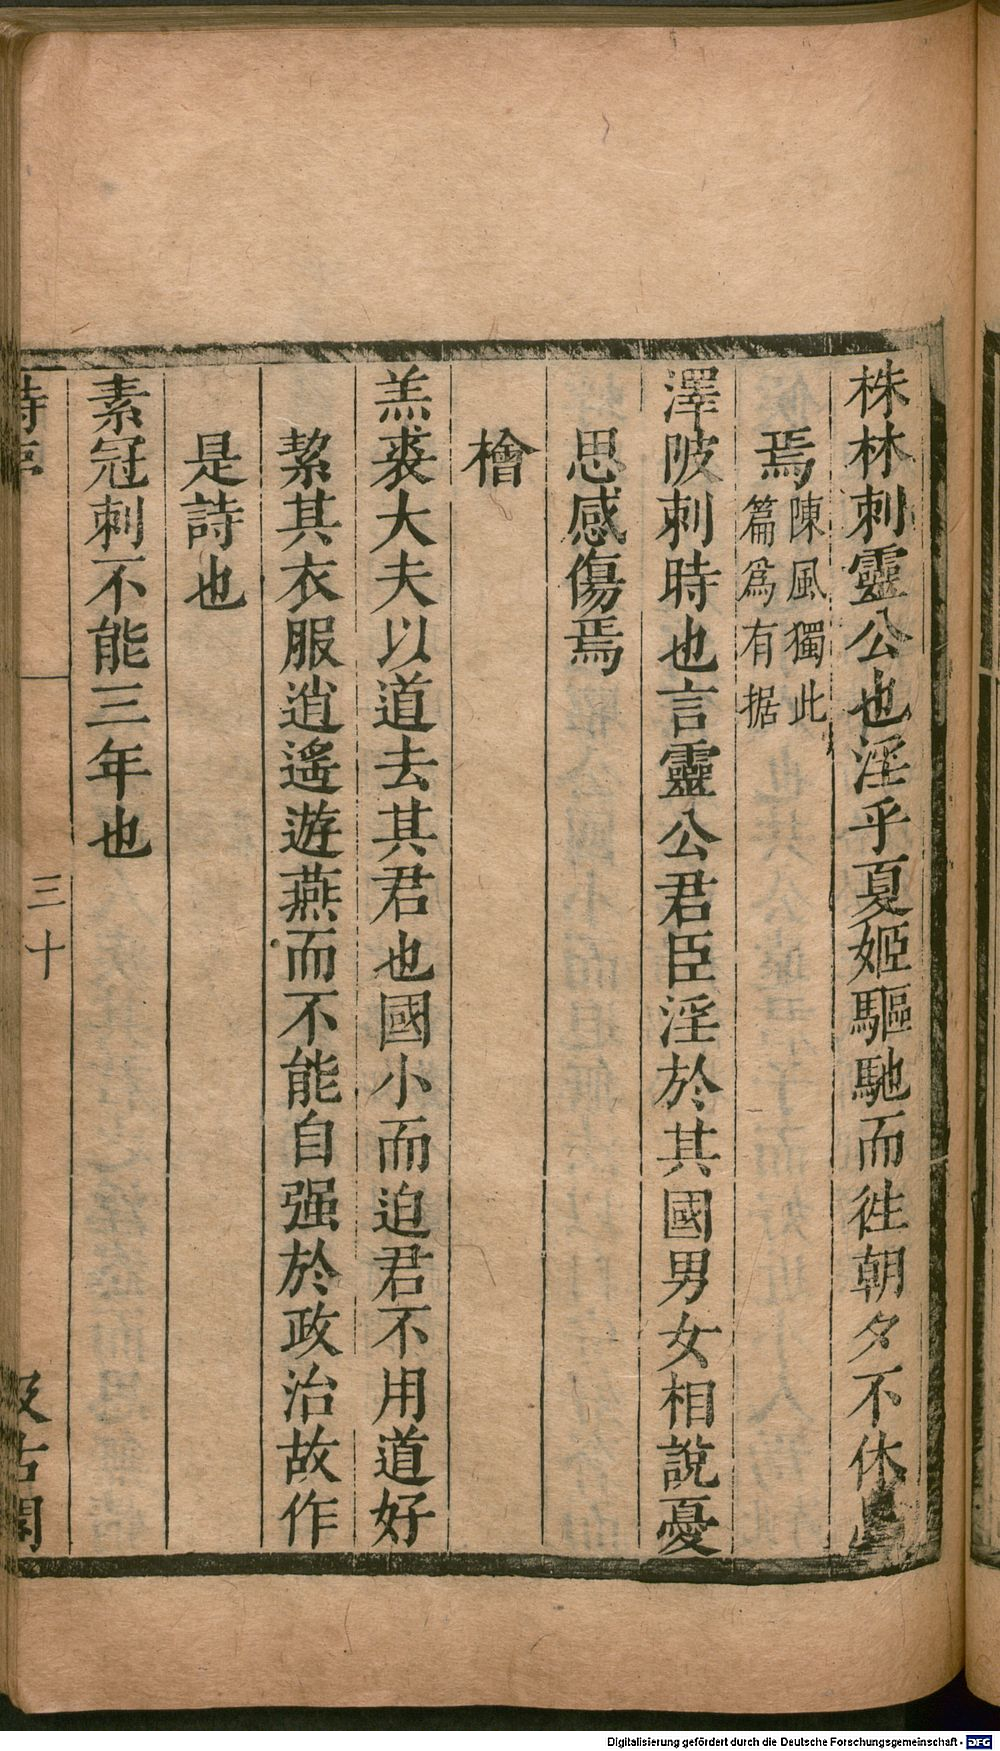 株林刺靈公也淫乎夏姬驅馳而徃朝夕不休
焉陳風獨此
篇爲有据
澤陂刺時也言靈公君臣淫於其國男女相說憂
思感傷焉
檜
羔裘大夫以道去其君也國小而迫君不用道好
絜其衣服逍遙遊燕而不能自强於政治故作
是詩也
素冠刺不能三年也
詩序
三十
汲古閣
Digitalisierung gefördert durch die Deutsche Forschungsgemeinschaft - DFG